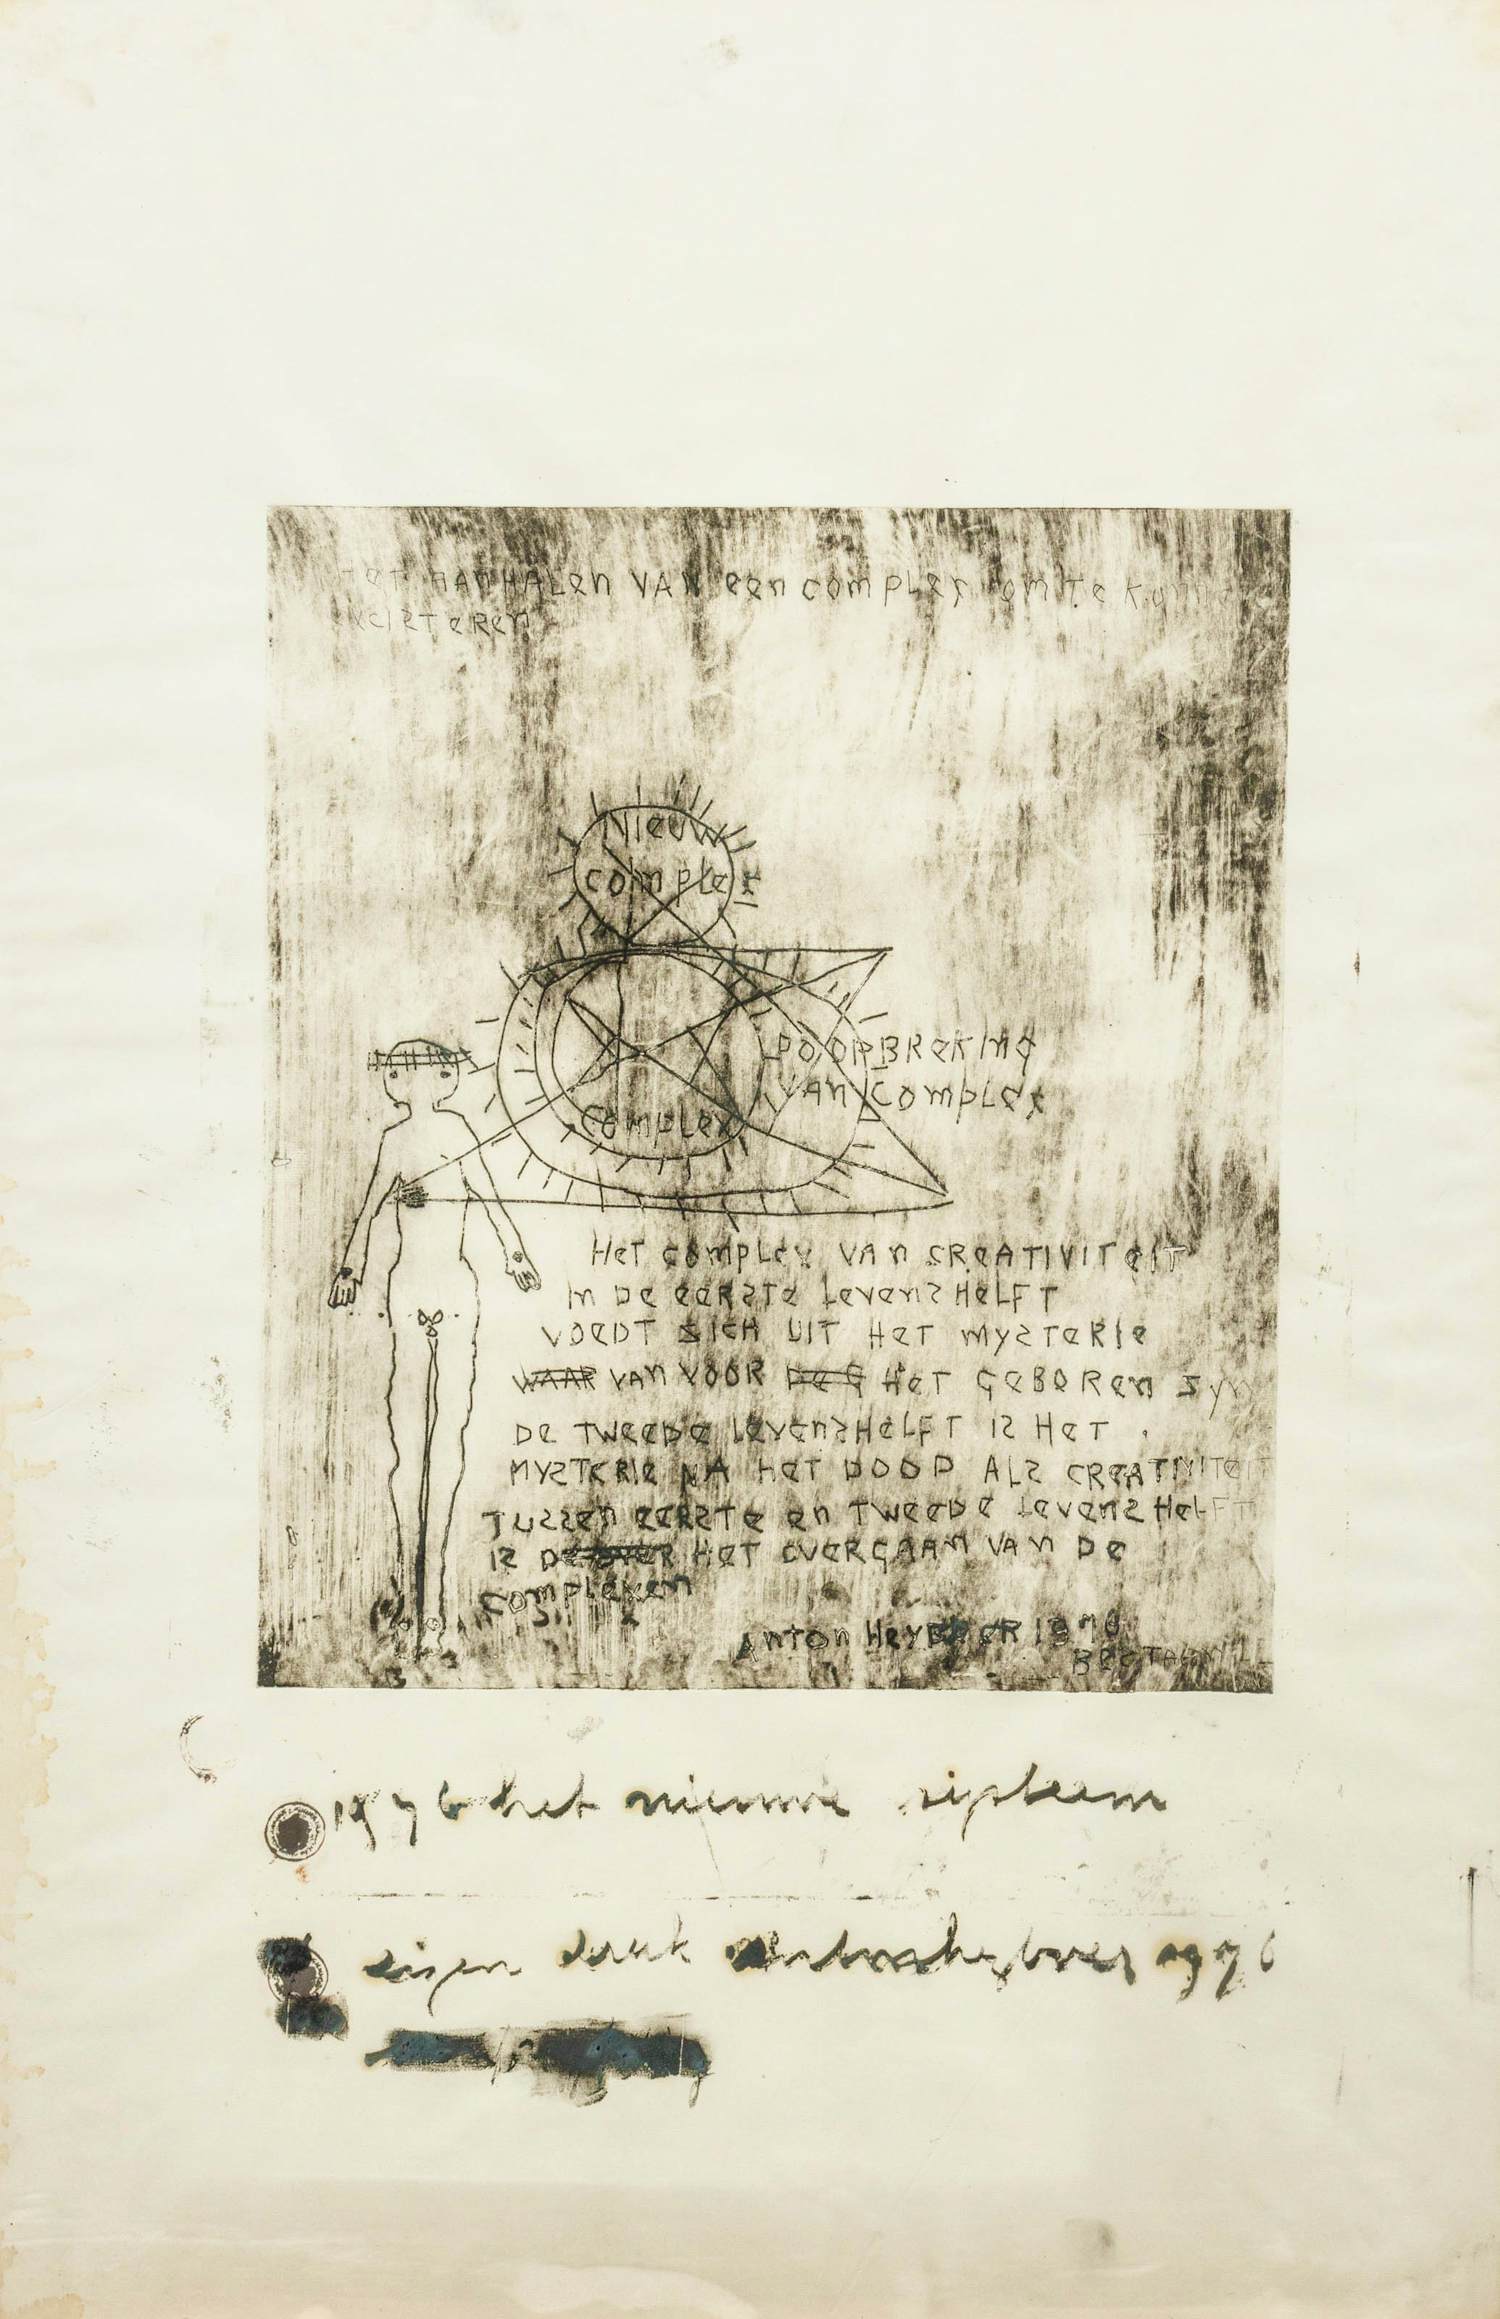 Het AANHALEN VAN een complex om te kunn
Nieuw
complex
DOORBREKING
VAN complex
complex
Het complex VAN CREATIVITEIT
In De eerste LEVENSHELFT
VOEDT SICH UIT HET MYSTERIE
WAAR VAN VOOR DE G HET GEBOREN SYN
DE TWEEDE LEVENSHELFT IS HET
MYSTERIE NA HET DOOD ALS CREATIVITEIT
TUSSEN EERSTE en TWEEDE LEVENSHELFT
IS HET OVERGAAN VAN DE
COMPLEXEN
ANTON HEYBOER 1976
1976 het nieuwe sisteem
eigen druk anton heyboer 1976